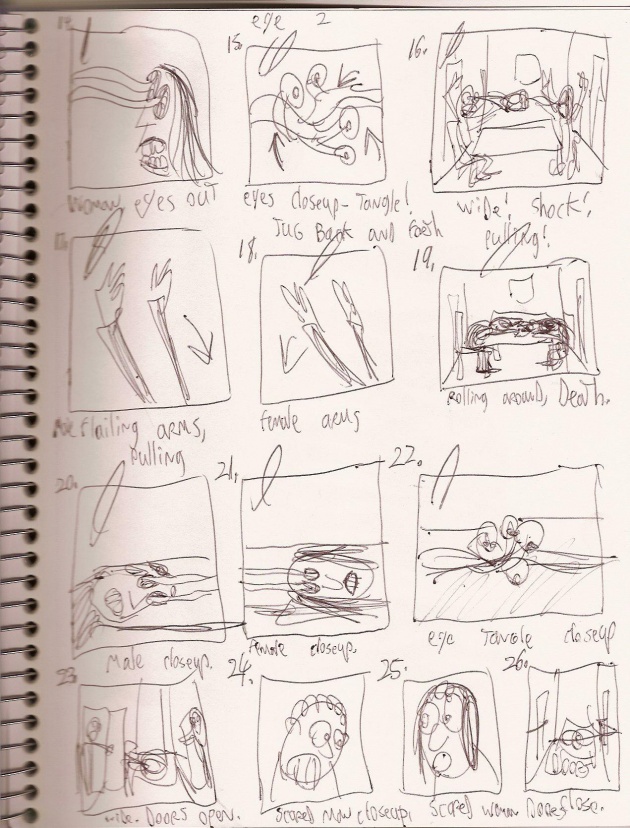 eye 2
14.
15.
16.
Woman eyes out
eyes closeup - Tangle!
Tug Back and Forth
wide! Shock!
pulling!
17.
18.
19.
Male flailing arms,
pulling
female arms
Rolling around, Death.
20.
21.
22.
Male closeup.
Female closeup.
eye Tangle closeup
23.
24.
25.
26.
Doors
wide. Doors open.
Scared Man closeup.
Scared woman
Doors close.